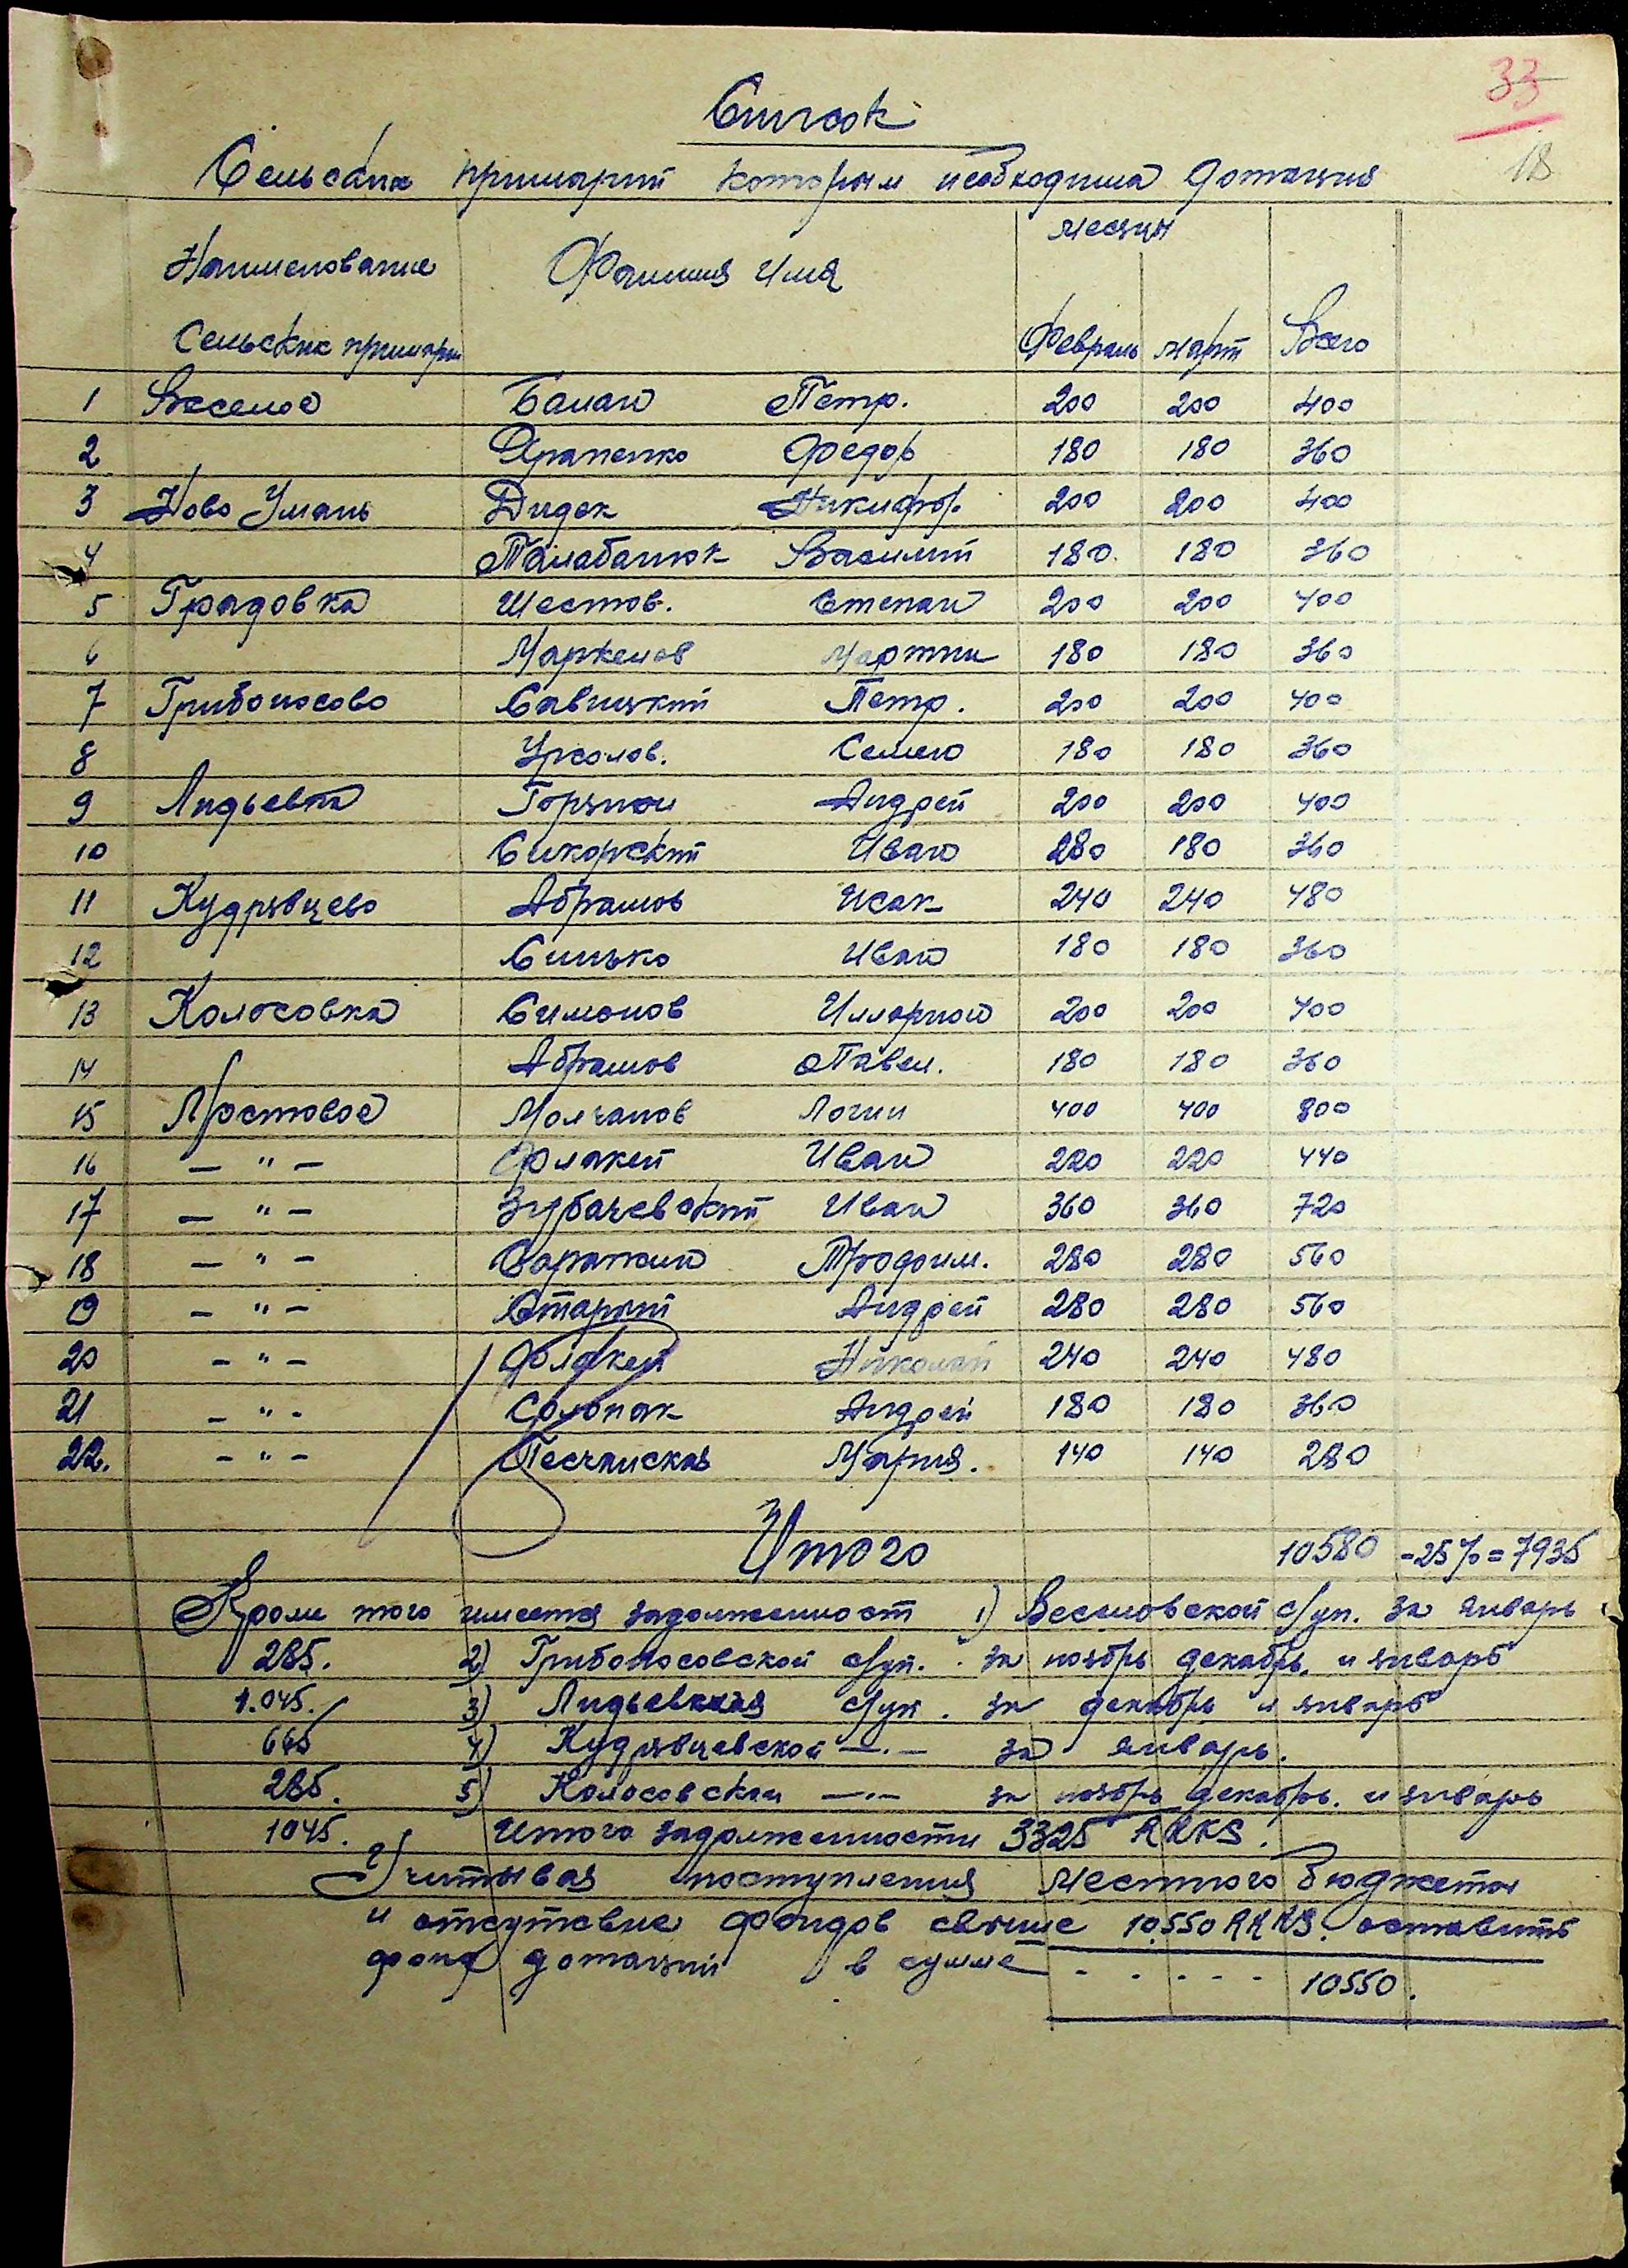 33
18
Список
Сельских примарий которым необходима дотация
Наименование Фамилия Имя месяцы
Сельских примари Февраль март Всего
1 Веселое Балан Петр. 200 200 400
2 Драпенко Федор 180 180 360
3 Ново Умань Дидек Никифор. 200 200 400
4 Палабанюк Василий 180 180 360
5 Градовка Шестов. Степан 200 200 400
6 Маркелов Мартин 180 180 360
7 Грибоносово Савицкий Петр. 200 200 400
8 Урсолов. Семен 180 180 360
9 Лидьевка Горянои Андрей 200 200 400
10 Сикорский Иван 280 180 360
11 Кудрявцево Абрамов Исак 240 240 480
12 Синько Иван 180 180 360
13 Колосовка Симонов Илларион 200 200 400
14 Абрамов Павел. 180 180 360
15 Мостовое Молчанов Логин 400 400 800
16 — " — Флакей Иван 220 220 440
17 — " — Зубачевский Иван 360 360 720
18 — " — Саражин Трофим. 280 280 560
19 — " — Старый Андрей 280 280 560
20 — " — Флакей Николай 240 240 480
21 — " — Солопак Андрей 180 180 360
22. — " — Песчанская Мария. 140 140 280
Итого 10580 -25% = 7935
Кроме того имеется задолженност 1) Веселовской с/уп. за январь
285. 2) Грибоносовской с/уп. за ноябрь декабрь и январь
1.045. 3) Лидьевская с/уп. за декабрь и январь
665 4) Кудрявцевской —"— за январь.
285. 5) Колосовской —"— за ноябрь декабрь. и январь
1045. Итого задолженности 3325 RKKS.
Учитывая поступления местного бюджета
и отсутсвие фондов свыше 10.550 RKKS. оставить
фонд дотаций в сумме - - - - - 10550.